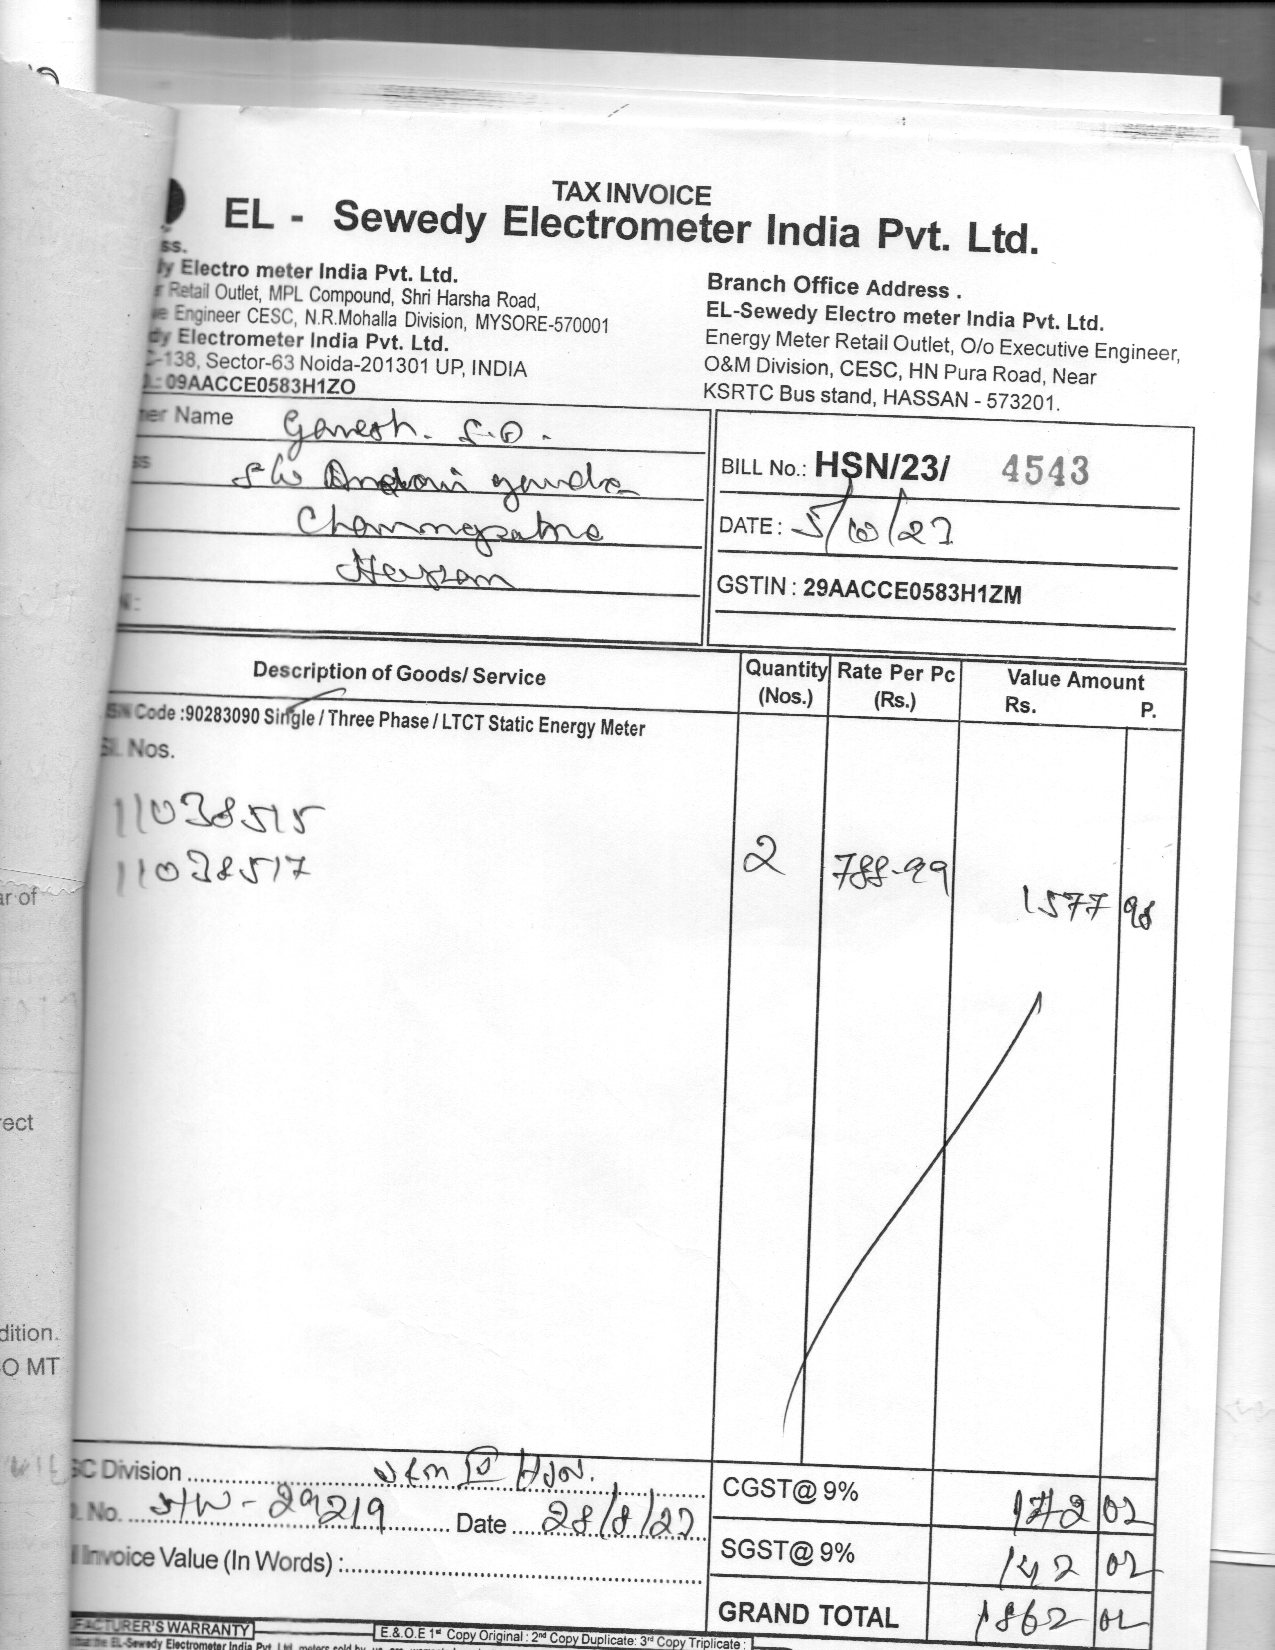 TAX INVOICE
EL - Sewedy Electrometer India Pvt. Ltd.
ss.
y Electro meter India Pvt. Ltd.
r Retail Outlet, MPL Compound, Shri Harsha Road,
e Engineer CESC, N.R.Mohalla Division, MYSORE-570001
dy Electrometer India Pvt. Ltd.
C-138, Sector-63 Noida-201301 UP, INDIA
: 09AACCE0583H1ZO
Branch Office Address .
EL-Sewedy Electro meter India Pvt. Ltd.
Energy Meter Retail Outlet, O/o Executive Engineer,
O&M Division, CESC, HN Pura Road, Near
KSRTC Bus stand, HASSAN - 573201.
mer Name Ganesh. S.D.
ss S/o
Hassan
N :
BILL No.: HSN/23/ 4543
DATE : 5/10/23
GSTIN : 29AACCE0583H1ZM
Description of Goods/ Service Quantity (Nos.) Rate Per Pc (Rs.) Value Amount Rs. P.
SN Code :90283090 Single / Three Phase / LTCT Static Energy Meter
Sl. Nos.
11038515
11038517
2 788-99 1577 98
SC Division
. No. 29219 Date 28/8/23
Invoice Value (In Words) :
CGST@ 9% 142 02
SGST@ 9% 142 02
GRAND TOTAL 1862 02
FACTURER'S WARRANTY
E.&.O.E 1st Copy Original : 2nd Copy Duplicate: 3rd Copy Triplicate :
that the EL-Sewedy Electrometer India Pvt. Ltd. meters sold by
ar of
rect
dition.
O MT